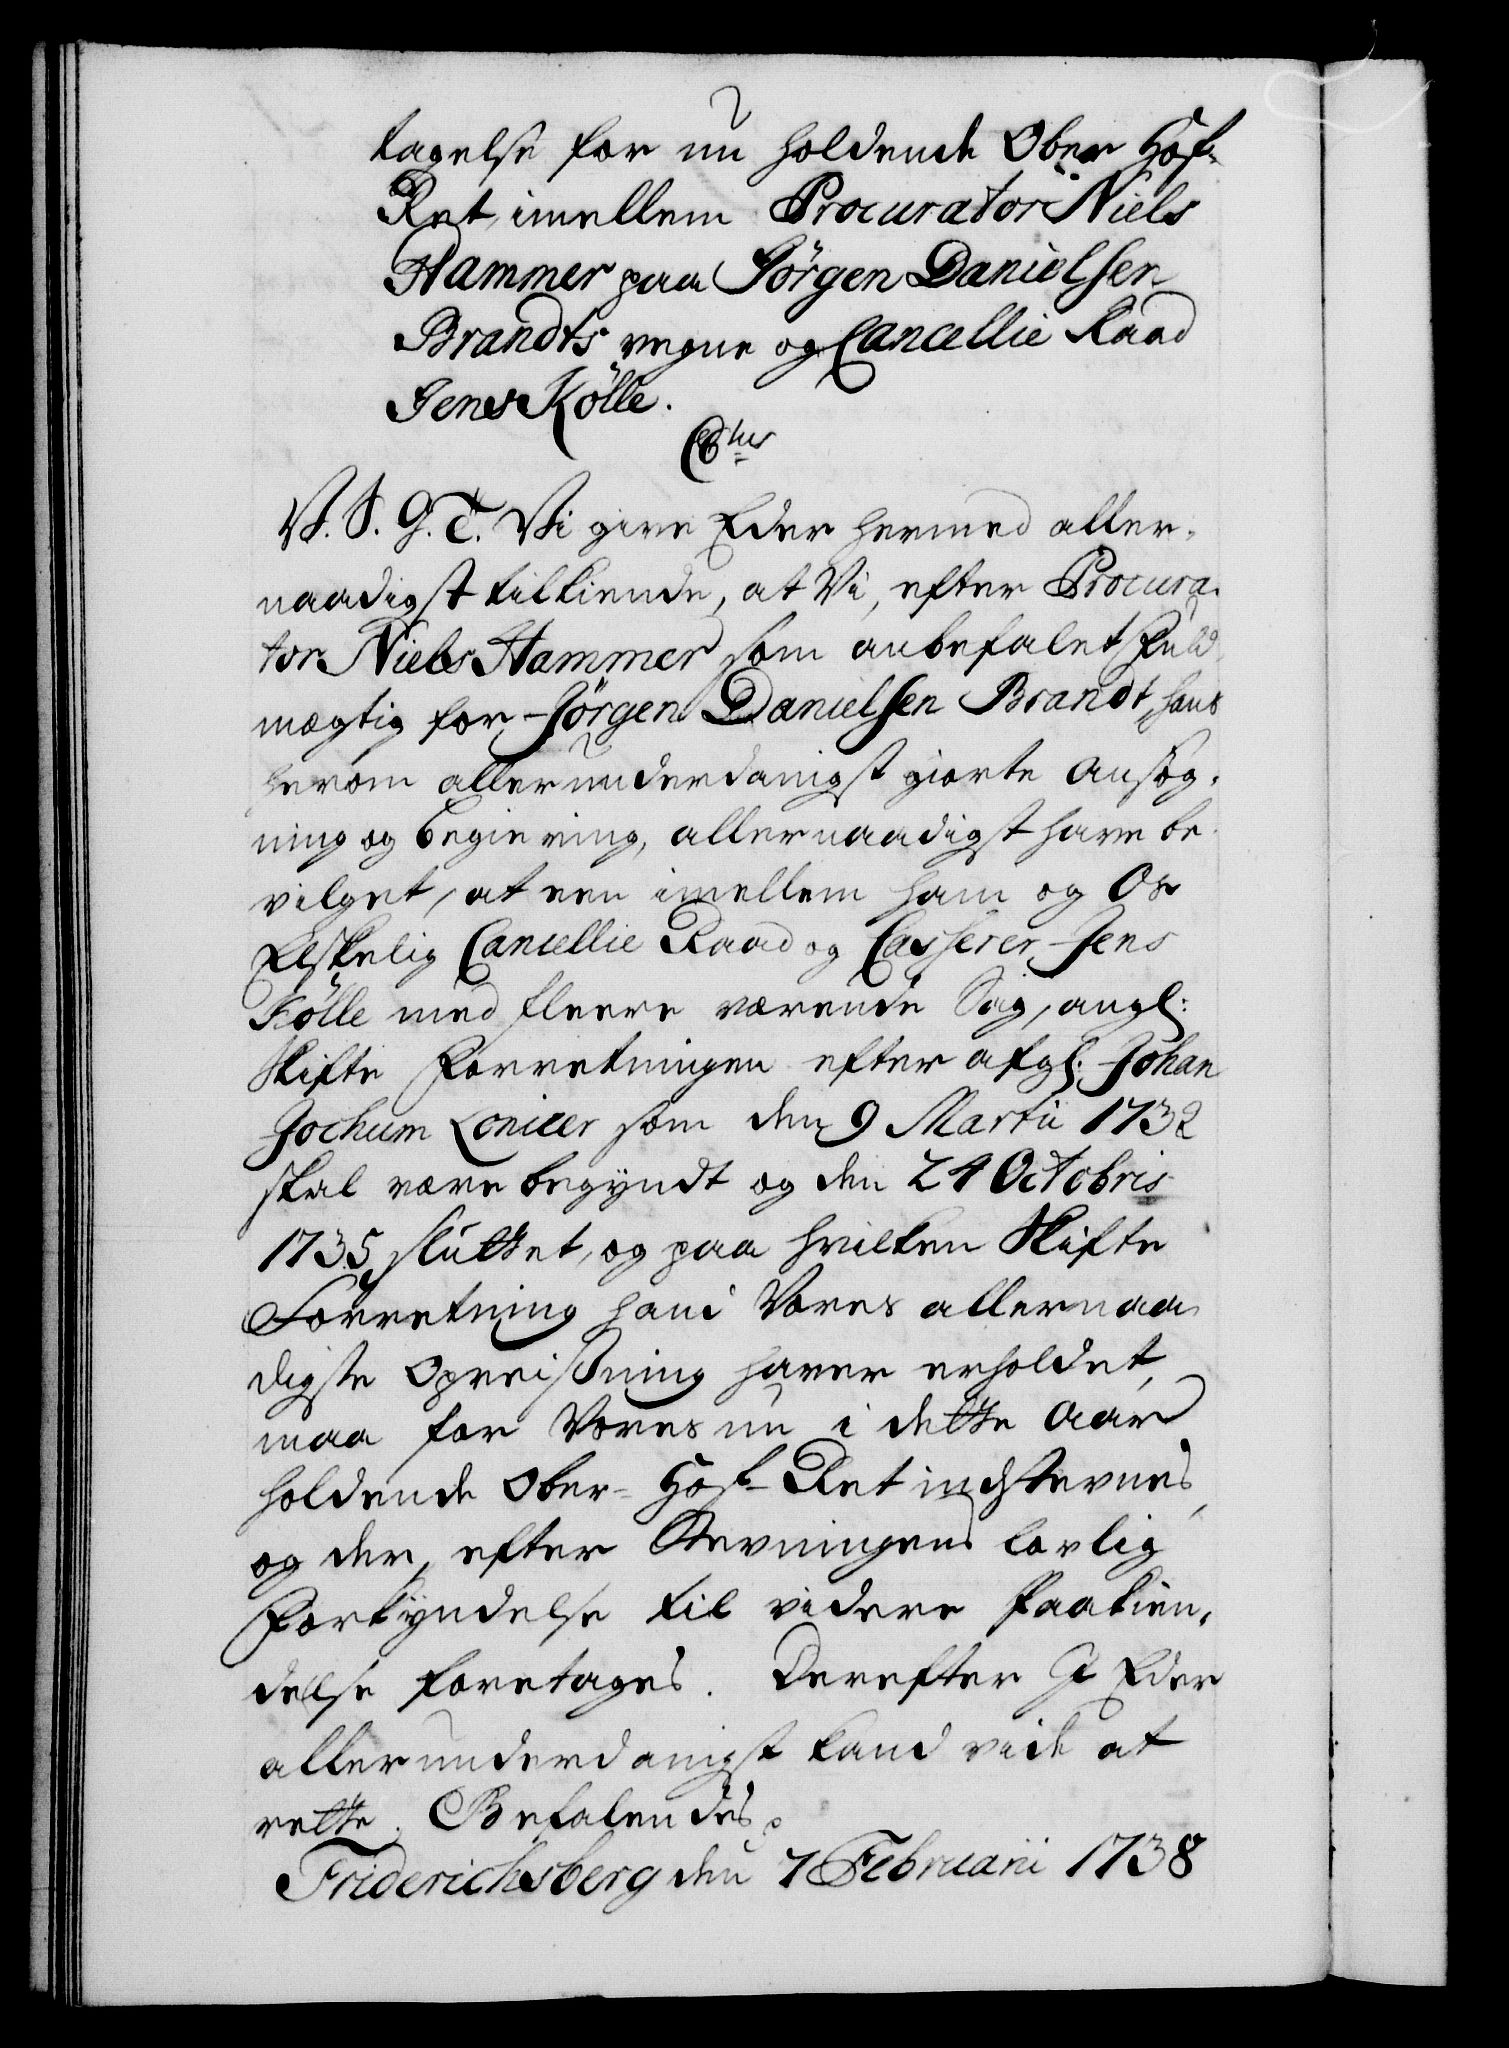 tagelse for nu holdende Ober Hof-
Ret imellem Procurator Niels
Hammer paa Jörgen Danielsen
Brandts vegne og Cancellie Raad
Jens Kölle.
V. S. G. T. Vi give Eder hermed aller-
naadigst tilkiende, at Vi, efter Procura-
tor Niels Hammer som anbefalet Fuld-
mægtig for Jörgen Danielsen Brandt, hans
herom allerunderdanigst giorte Ansøg-
ning og begiering, allernaadigst have be-
vilget, at een imellem ham og Os
Elskelig Cancellie Raad og Casserer Jens
Kölle med fleere værende Sag, angl:
Skifte Forretningen efter afgl: Johan
Jochum Lonicer som den 9 Martii 1732
skal være begyndt og den 24 Octobris
1735 sluttet, og paa hvilken Skifte
Forretning hand Vores allernaa-
digste Opreisning haver erholdet,
maa for Vores nu i dette Aar
holdende Ober-Hof-Ret indstevnes,
og der, efter Stevningens lovlig
Forkyndelse til videre Paakien-
delse foretages. Derefter I Eder
allerunderdanigst kand vide at
rette. Befalendes
Friderichsberg den 7 Februarii 1738